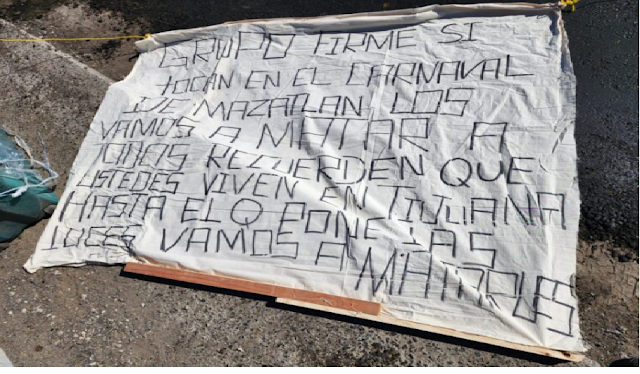 GRUPO FIRME SI
TOCAN EN EL CARNAVAL
DE MAZATLAN LOS
VAMOS A MATAR A
TODOS RECUERDEN QUE
USTEDES VIVEN EN TIJUANA
HASTA EL Q PONE LAS
VAMOS A